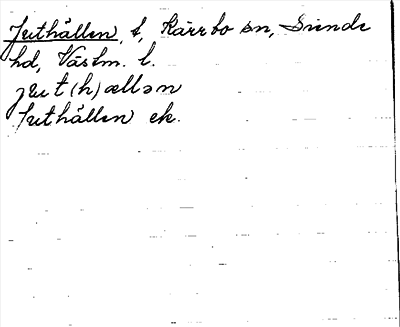 Juthällen, t, Kärrbo sn, Siende
hd, Västm. l.
jʉt(h)ællən
Juthällen ek.